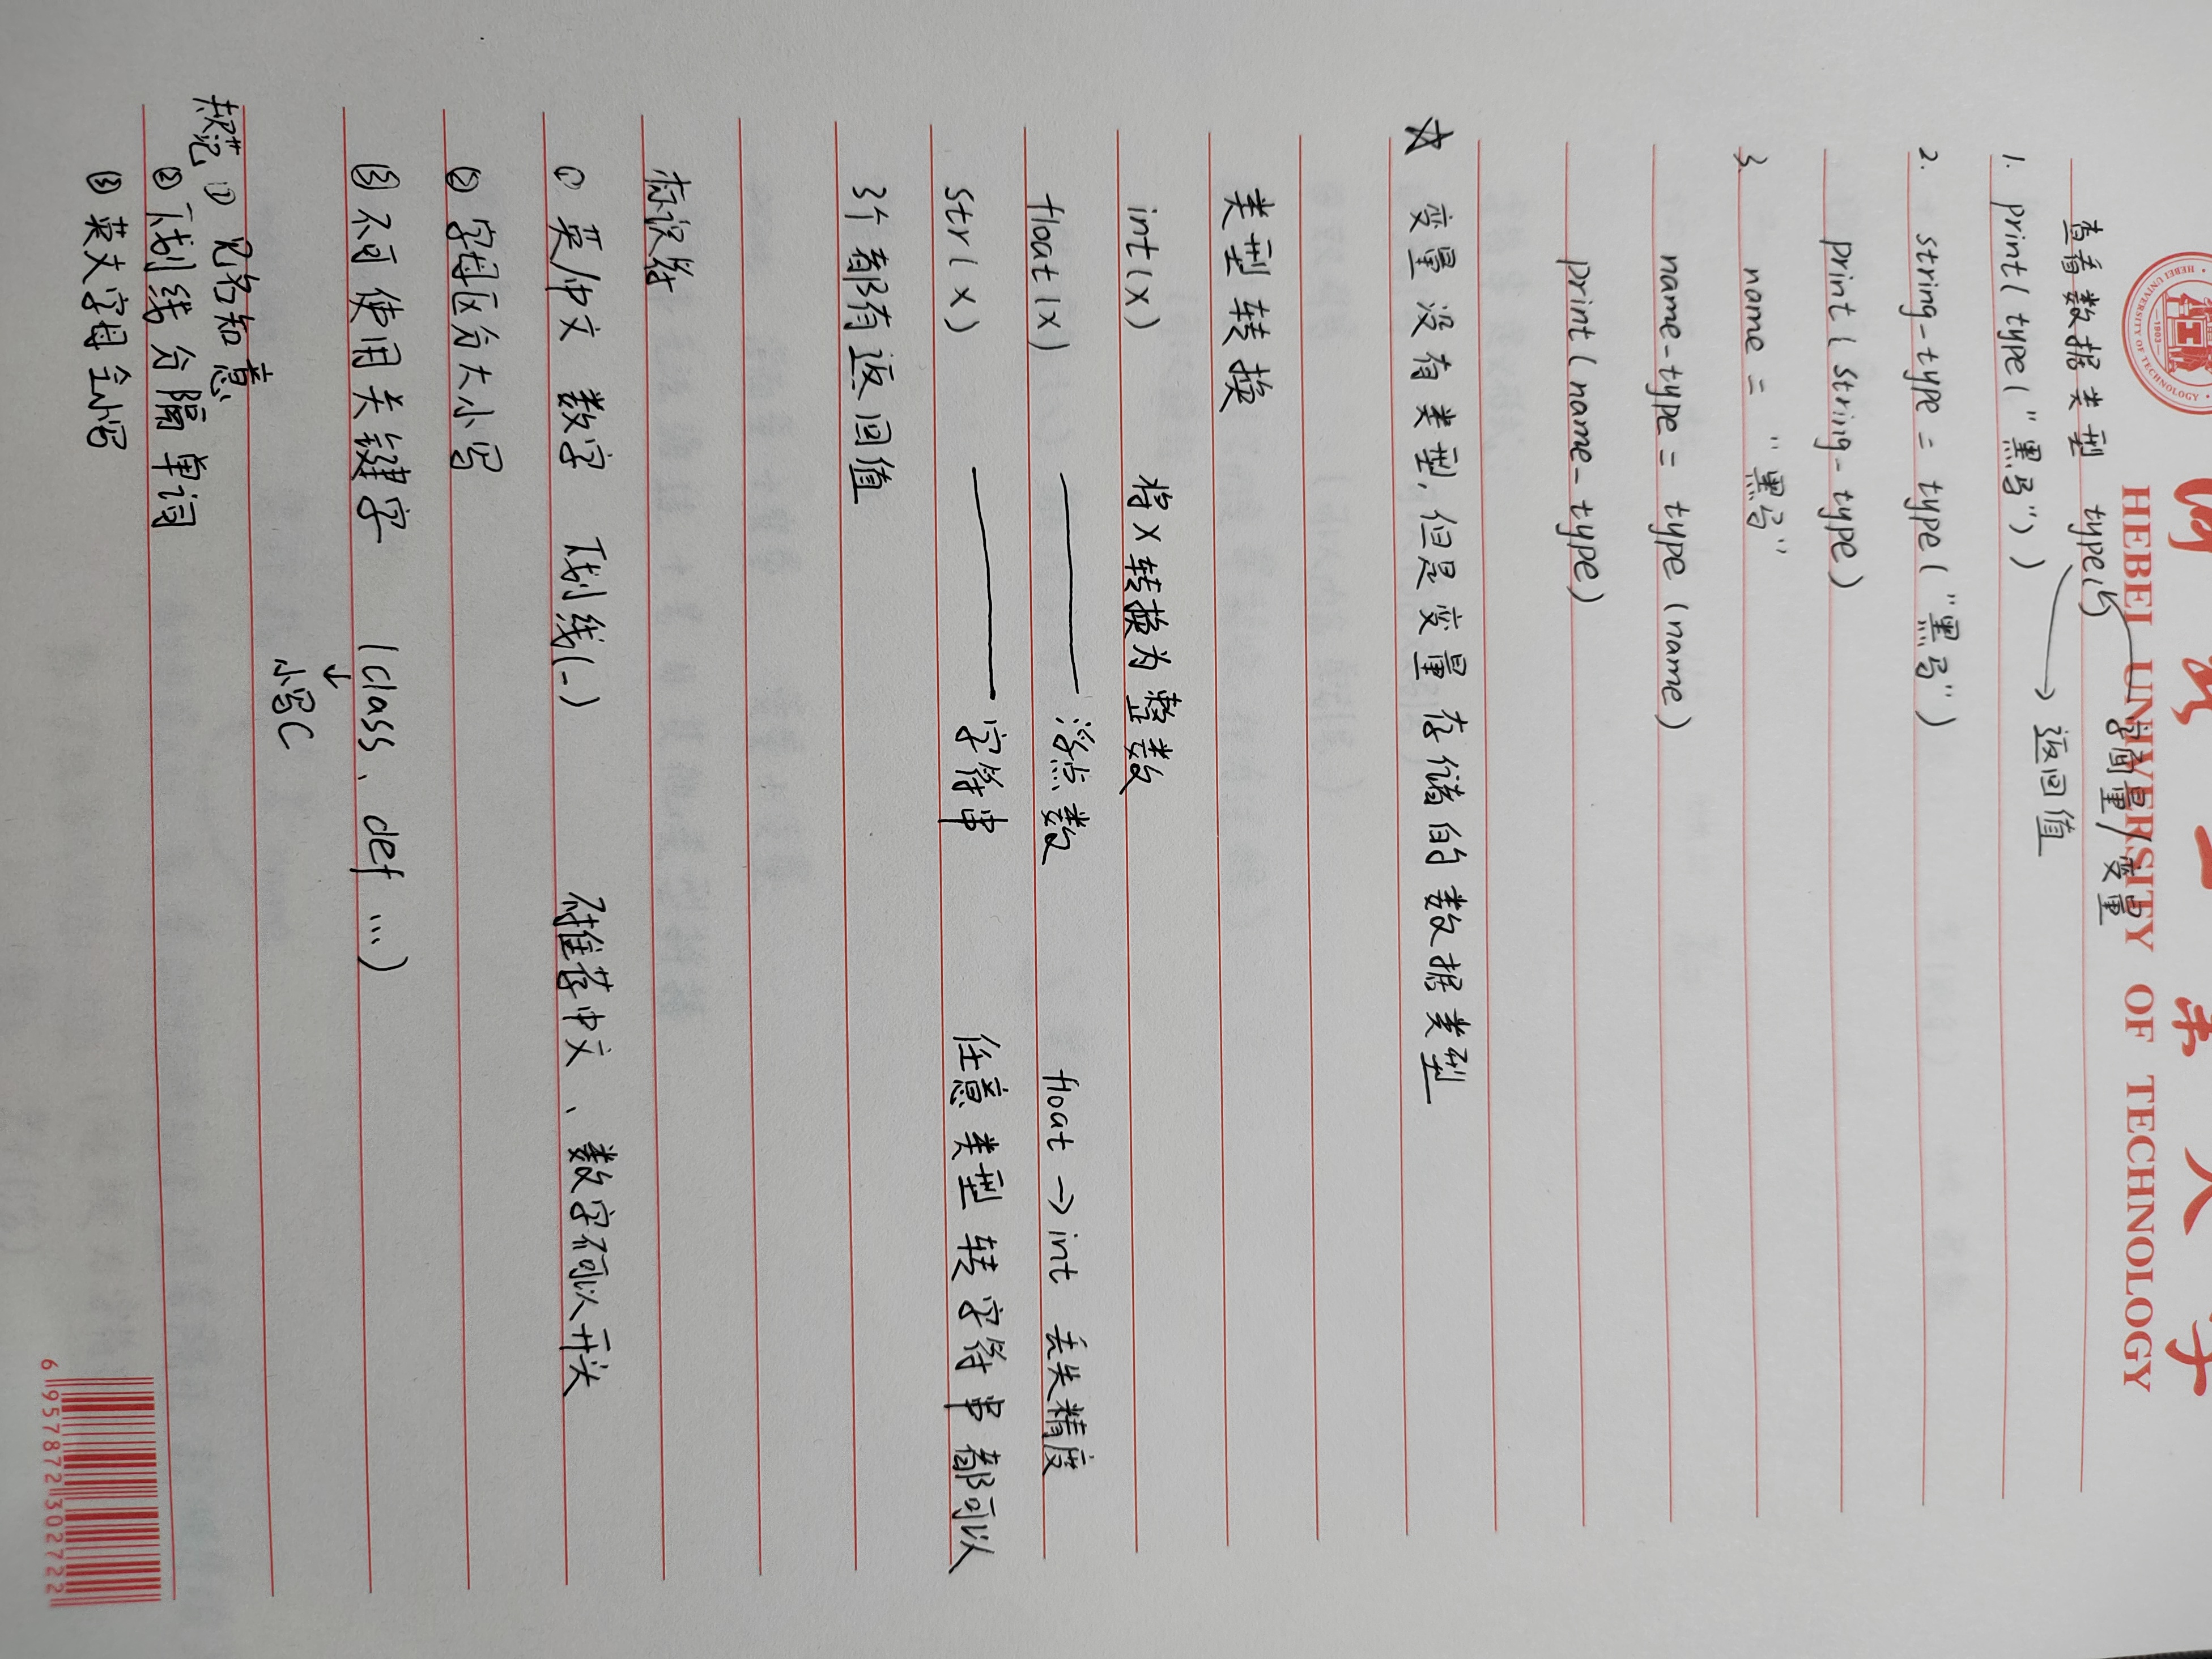 河北工业大学
HEBEI UNIVERSITY OF TECHNOLOGY
HEBEI UNIVERSITY OF TECHNOLOGY
1903
查看数据类型 type() 字面量/变量
返回值
1. print(type("黑马"))
2. string_type = type("黑马")
print(string_type)
3. name = "黑马"
name_type = type(name)
print(name_type)
☆ 变量没有类型,但是变量存储的数据类型
类型转换
int(x) 将x转换为整数
float(x) —— 浮点数 float → int 丢失精度
str(x) —— 字符串 任意类型转字符串都可以
3个都有返回值
标识符
① 英/中文 数字 下划线(_) 不推荐中文、数字不可以开头
② 字母区分大小写
③ 不可使用关键字 (class、def ...)
↓
小写C
规范 ① 见名知意
② 下划线分隔单词
③ 英文字母全小写
6 957872 302722